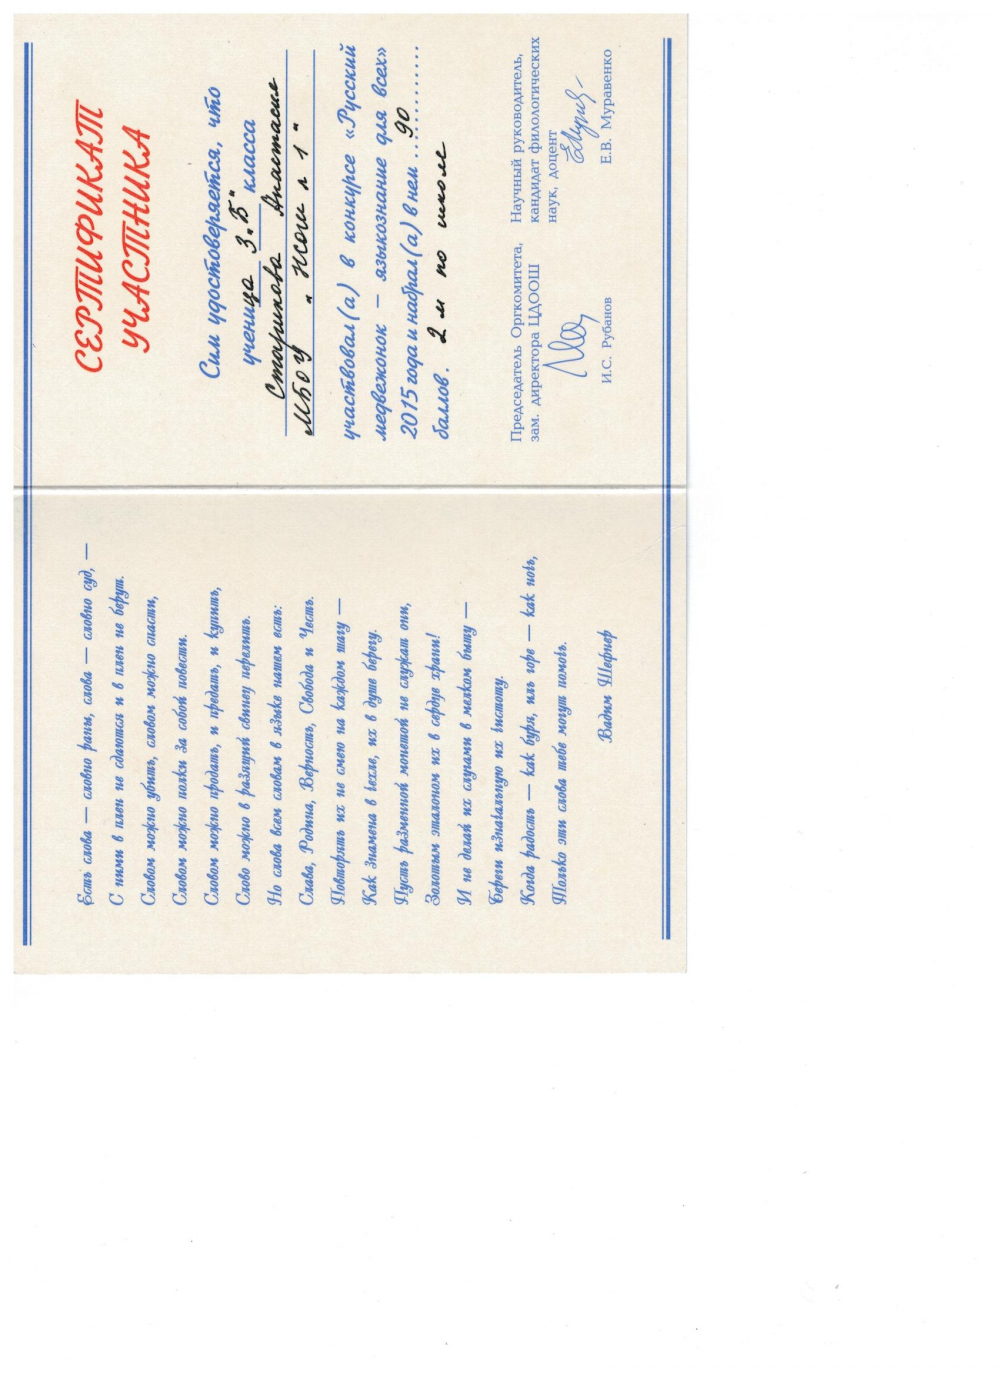 Есть слова — словно раны, слова — словно суд, —
С ними в плен не сдаются и в плен не берут.
Словом можно убить, словом можно спасти,
Словом можно полки за собой повести.
Словом можно продать, и предать, и купить,
Слово можно в разящий свинец перелить.
Но слова всем словам в языке нашем есть:
Слава, Родина, Верность, Свобода и Честь.
Повторять их не смею на каждом шагу —
Как знамена в чехле, их в душе берегу.
Пусть разменной монетой не служат они,
Золотым эталоном их в сердце храни!
И не делай их слугами в мелком быту —
Береги изначальную их чистоту.
Когда радость — как буря, иль горе — как ночь,
Только эти слова тебе могут помочь.
Вадим Шефнер
СЕРТИФИКАТ
УЧАСТНИКА
Сим удостоверяется, что
ученица 3 „Б" класса
Старикова Анастасия
МБОУ „ №1"
участвовал(а) в конкурсе «Русский
медвежонок – языкознание для всех»
2015 года и набрал(а) в нем ...90..........
баллов. 2 м по школе
Председатель Оргкомитета,
зам. директора ЦДООШ
И.С. Рубанов
Научный руководитель,
кандидат филологических
наук, доцент
Е.В. Муравенко